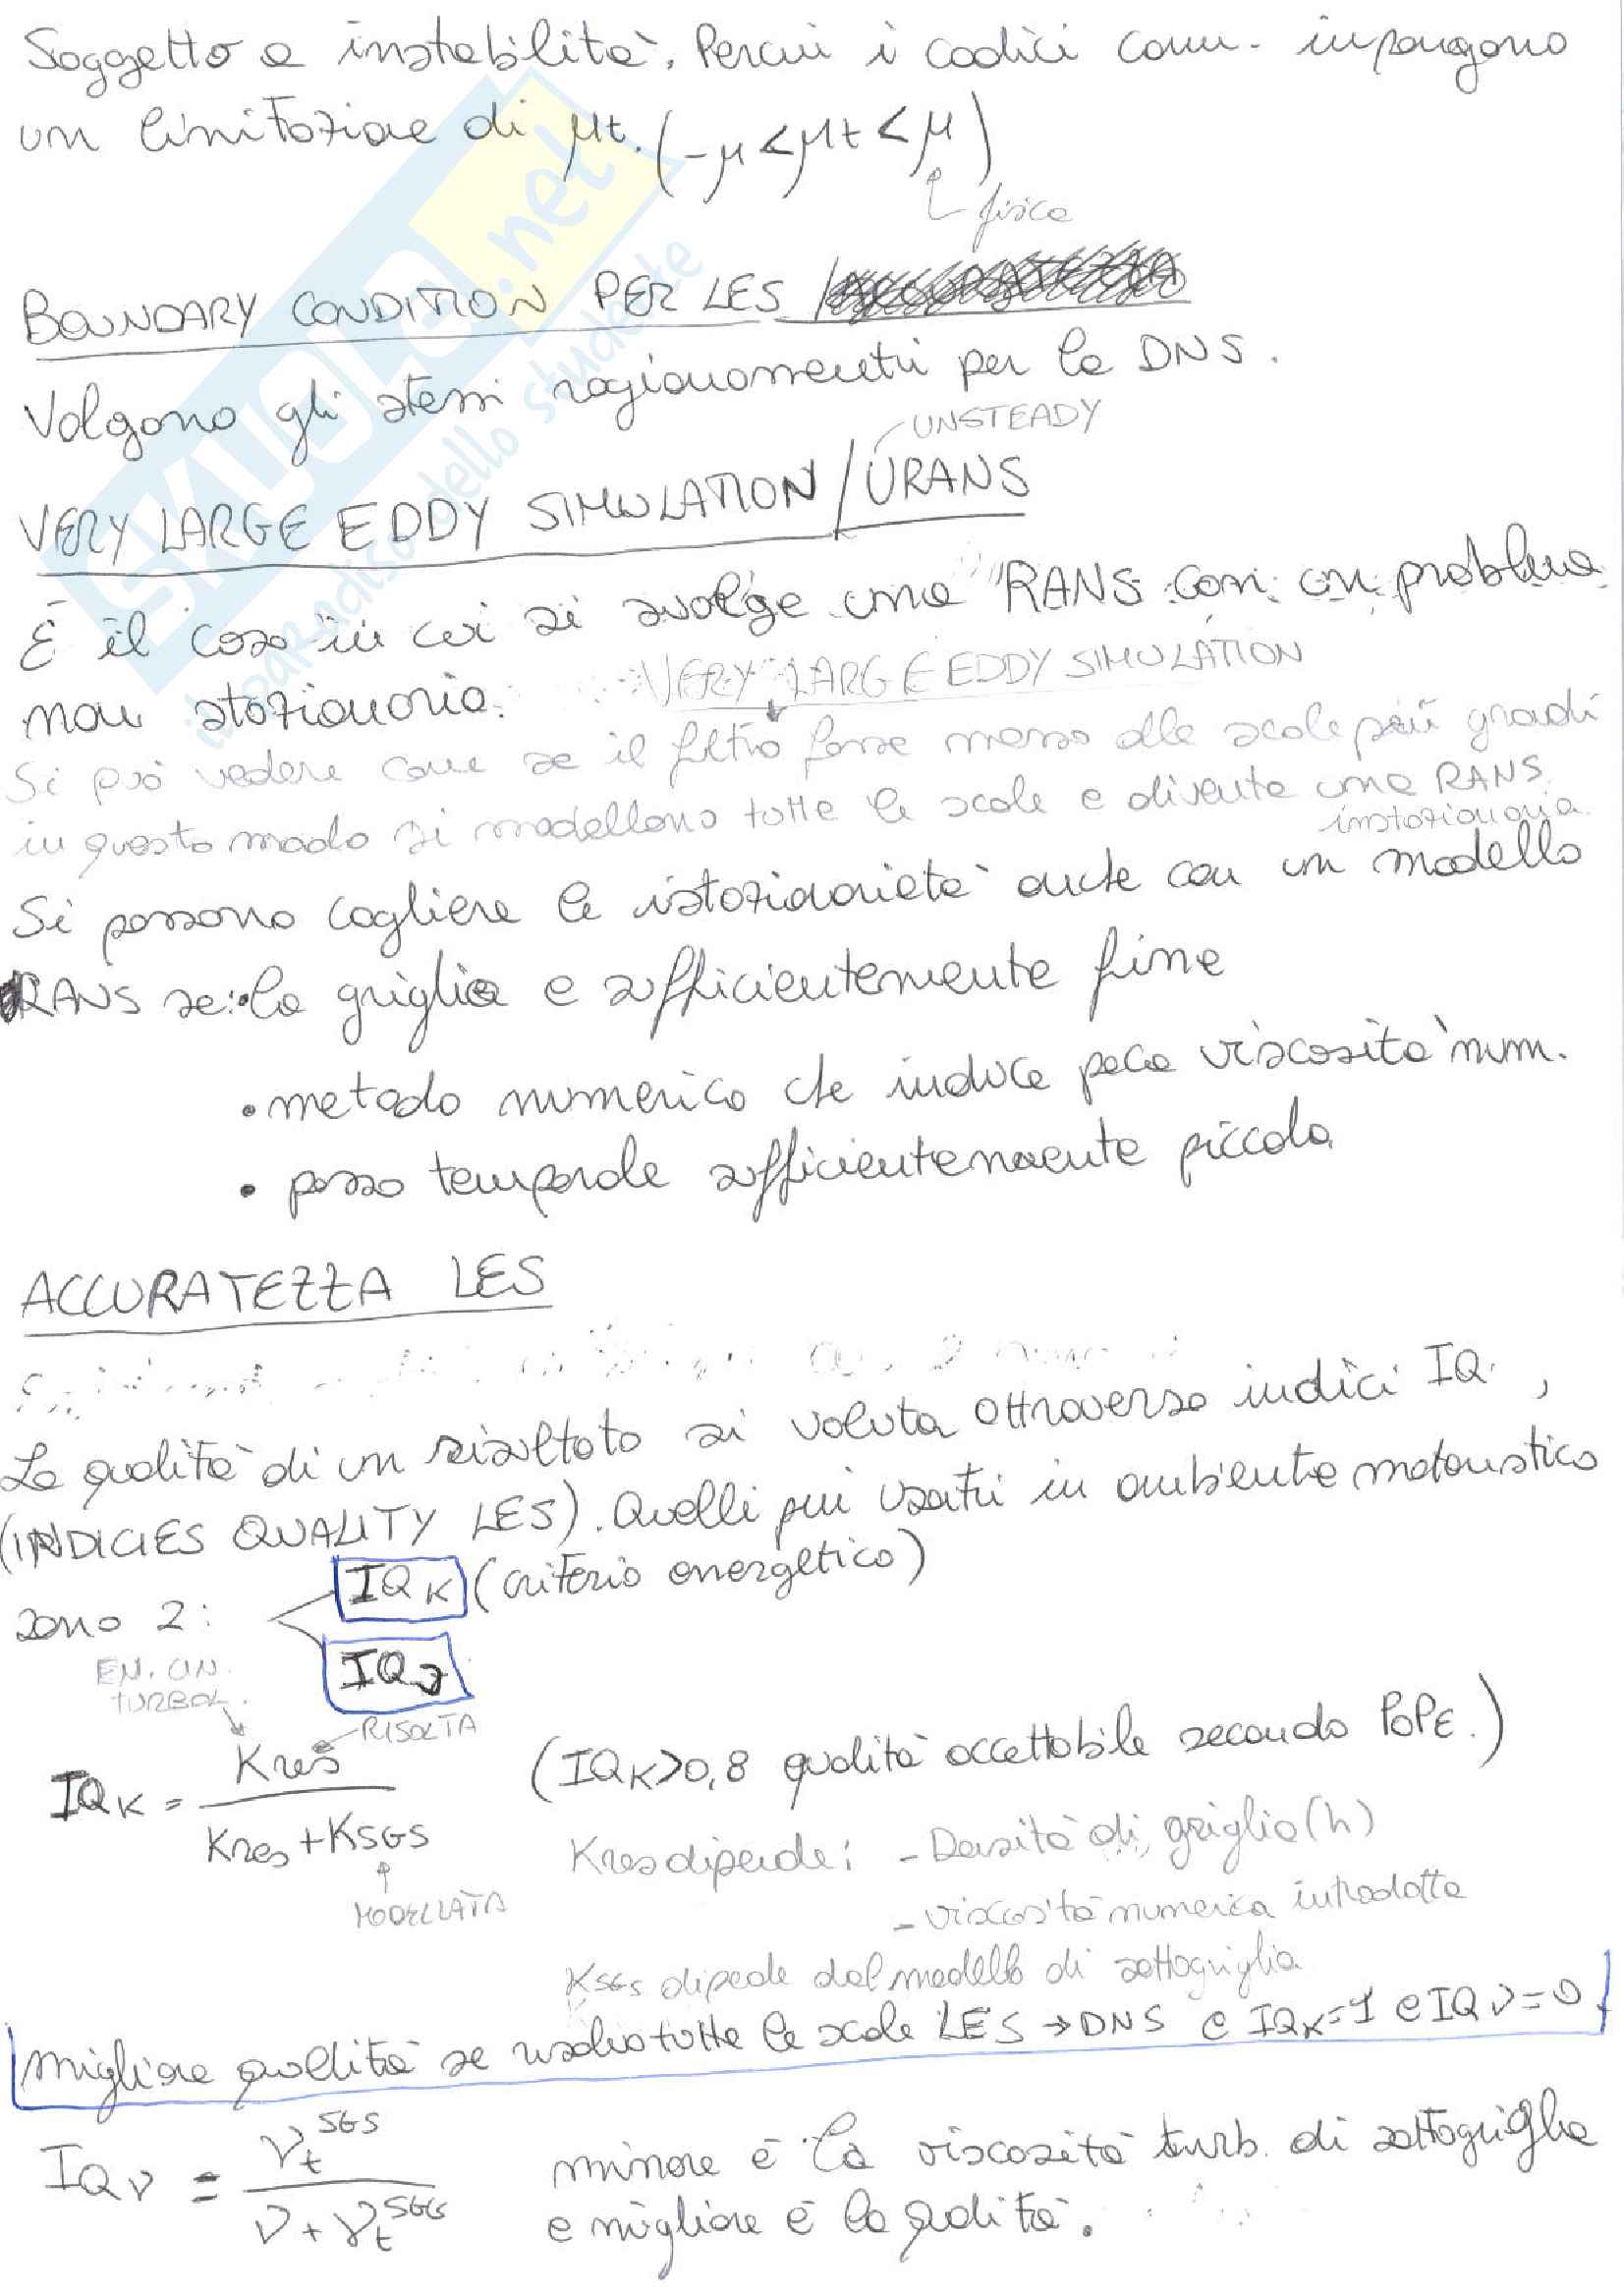 Soggetto a instabilità. Percui i codici comm. impongono
un limitazione di μt. (-μ < μt < μ)
fisica
BOUNDARY CONDITION PER LES
Valgono gli stessi ragionamenti per la DNS.
UNSTEADY
VERY LARGE EDDY SIMULATION / URANS
È il caso in cui si svolge una RANS con un problema
non stazionario.
VERY LARGE EDDY SIMULATION
Si può vedere come se il filtro fosse messo alle scale più grandi
in questo modo si modellano tutte le scale e diventa una RANS
instazionaria.
Si possono cogliere le istazionarietà anche con un modello
RANS se: • la griglia e sufficientemente fine
• metodo numerico che induce poca viscosità num.
• passo temporale sufficientemente piccolo
ACCURATEZZA LES
La qualità di un risultato si valuta attraverso indici IQ,
(INDICIES QUALITY LES). Quelli piu usati in ambiente motoristico
sono 2:
IQ K (criterio energetico)
IQ ν
EN. CIN.
TURBOL.
RISOLTA
IQ K = Kres / (Kres + KSGS)
(IQ K > 0,8 qualità accettabile secondo POPE.)
MODELLATA
Kres dipende: - Densità di griglia (h)
- viscosità numerica introdotta
KSGS dipende dal modello di sottogriglia
migliore qualità se risolvo tutte le scale LES → DNS e IQ K = 1 e IQ ν = 0.
IQ ν = νt^SGS / (ν + νt^SGS)
minore è la viscosità turb. di sottogriglia
e migliore è la qualità.
SKUOLA.net
il paradiso dello studente